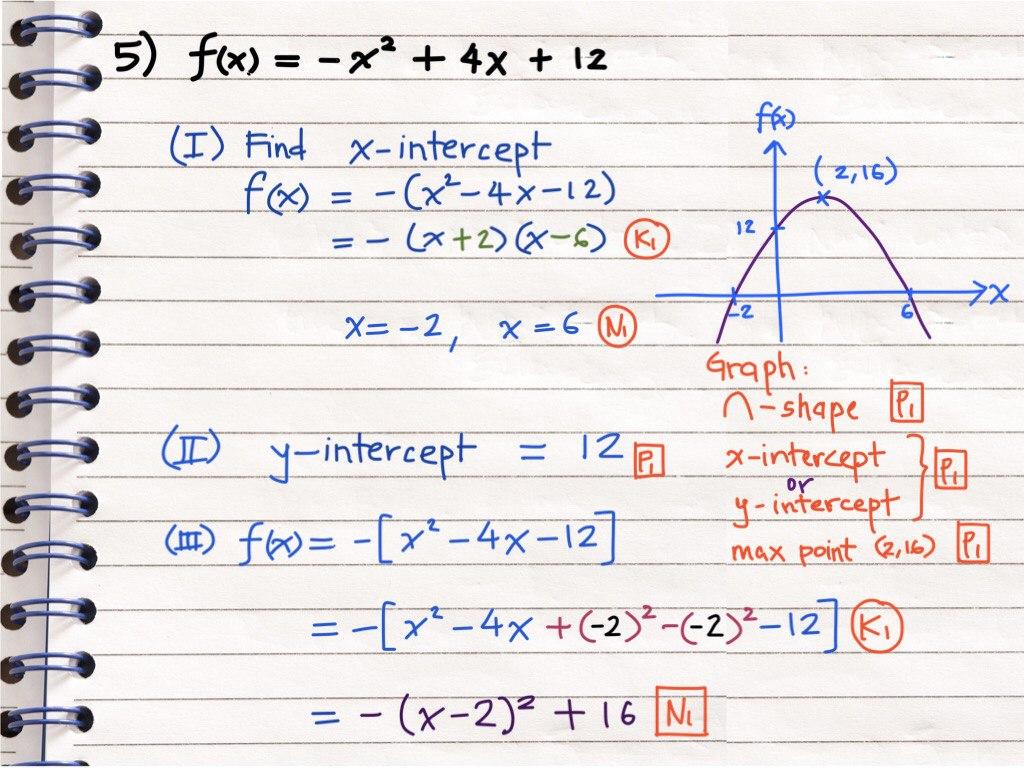 5) f(x) = -x² + 4x + 12
(I) Find x-intercept
f(x) = -(x² - 4x - 12)
= - (x+2)(x-6) K1
x = -2, x = 6 N1
(II) y-intercept = 12 P1
(III) f(x) = -[x² - 4x - 12]
= -[x² - 4x + (-2)² - (-2)² - 12] K1
= - (x-2)² + 16 N1
f(x)
(2,16)
12
x
-2
6
Graph:
∩-shape P1
x-intercept
or
y-intercept
P1
max point (2,16) P1